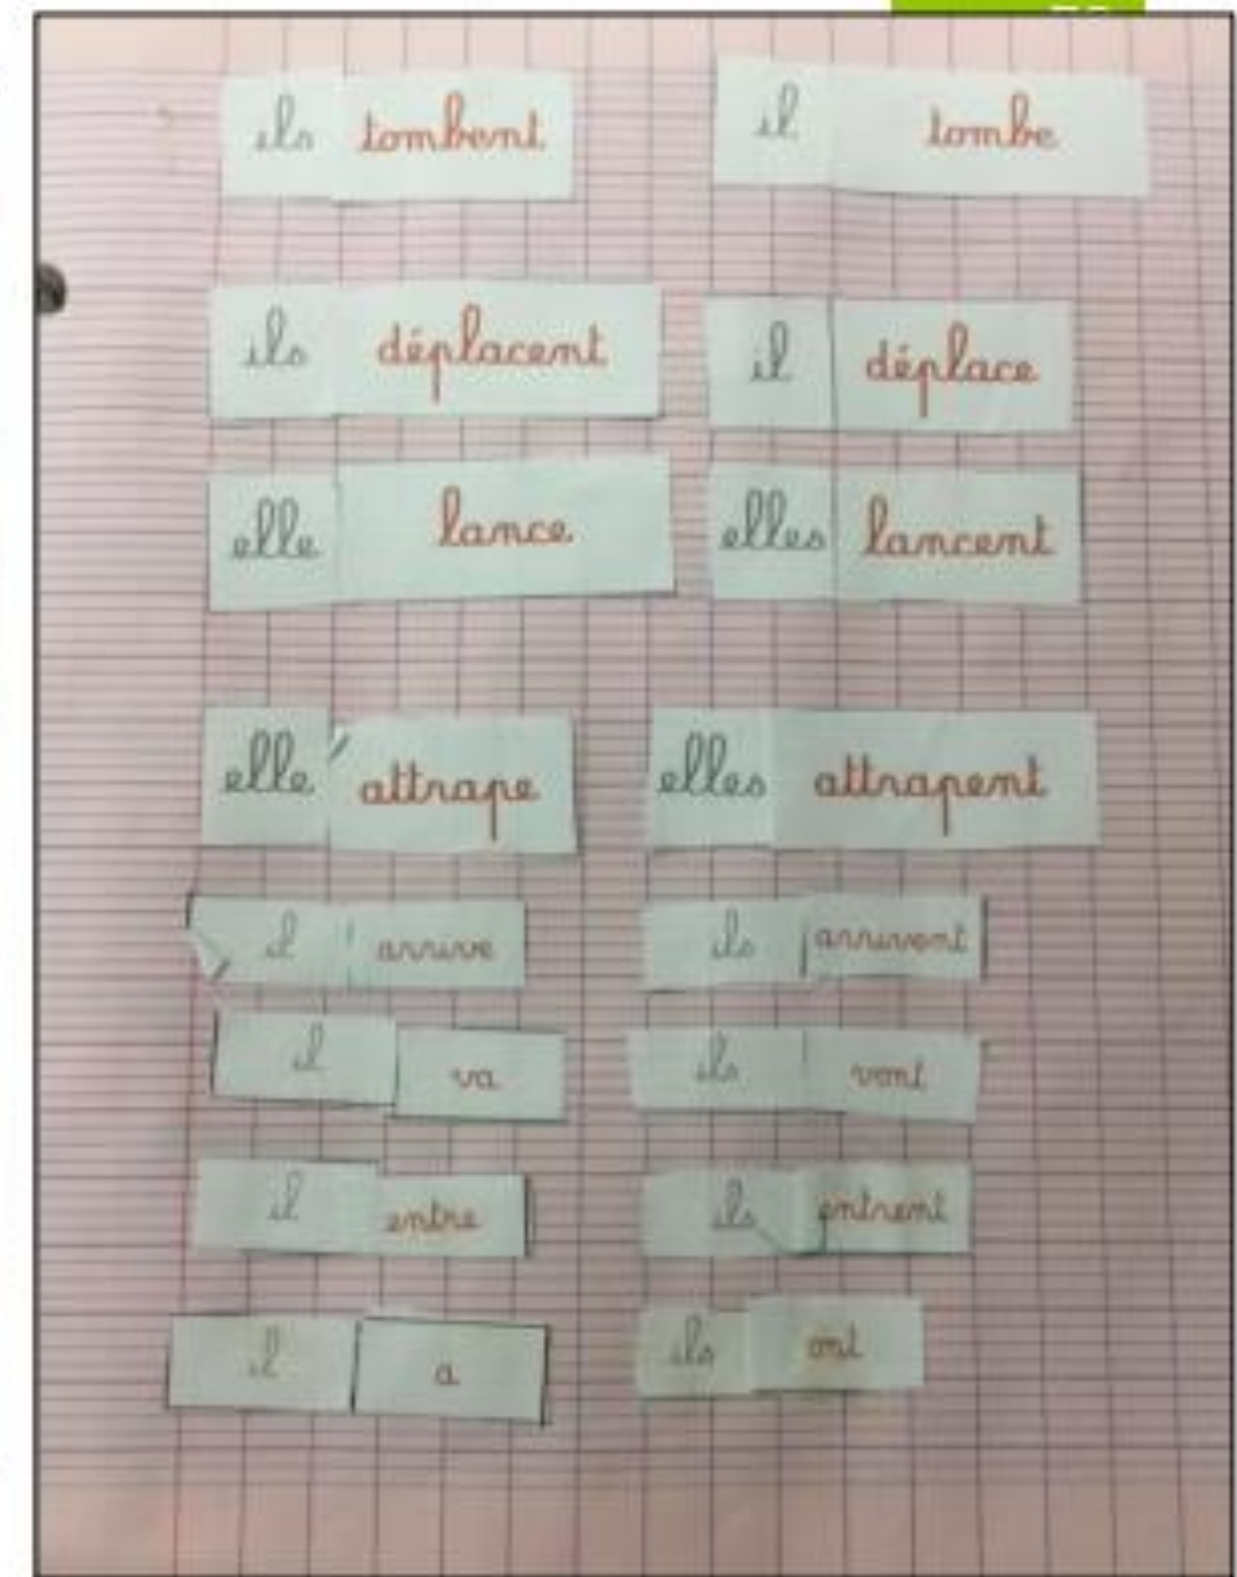 ils tombent il tombe
ils déplacent il déplace
elle lance elles lancent
elle attrape elles attrapent
il arrive ils arrivent
il va ils vont
il entre ils entrent
il a ils ont